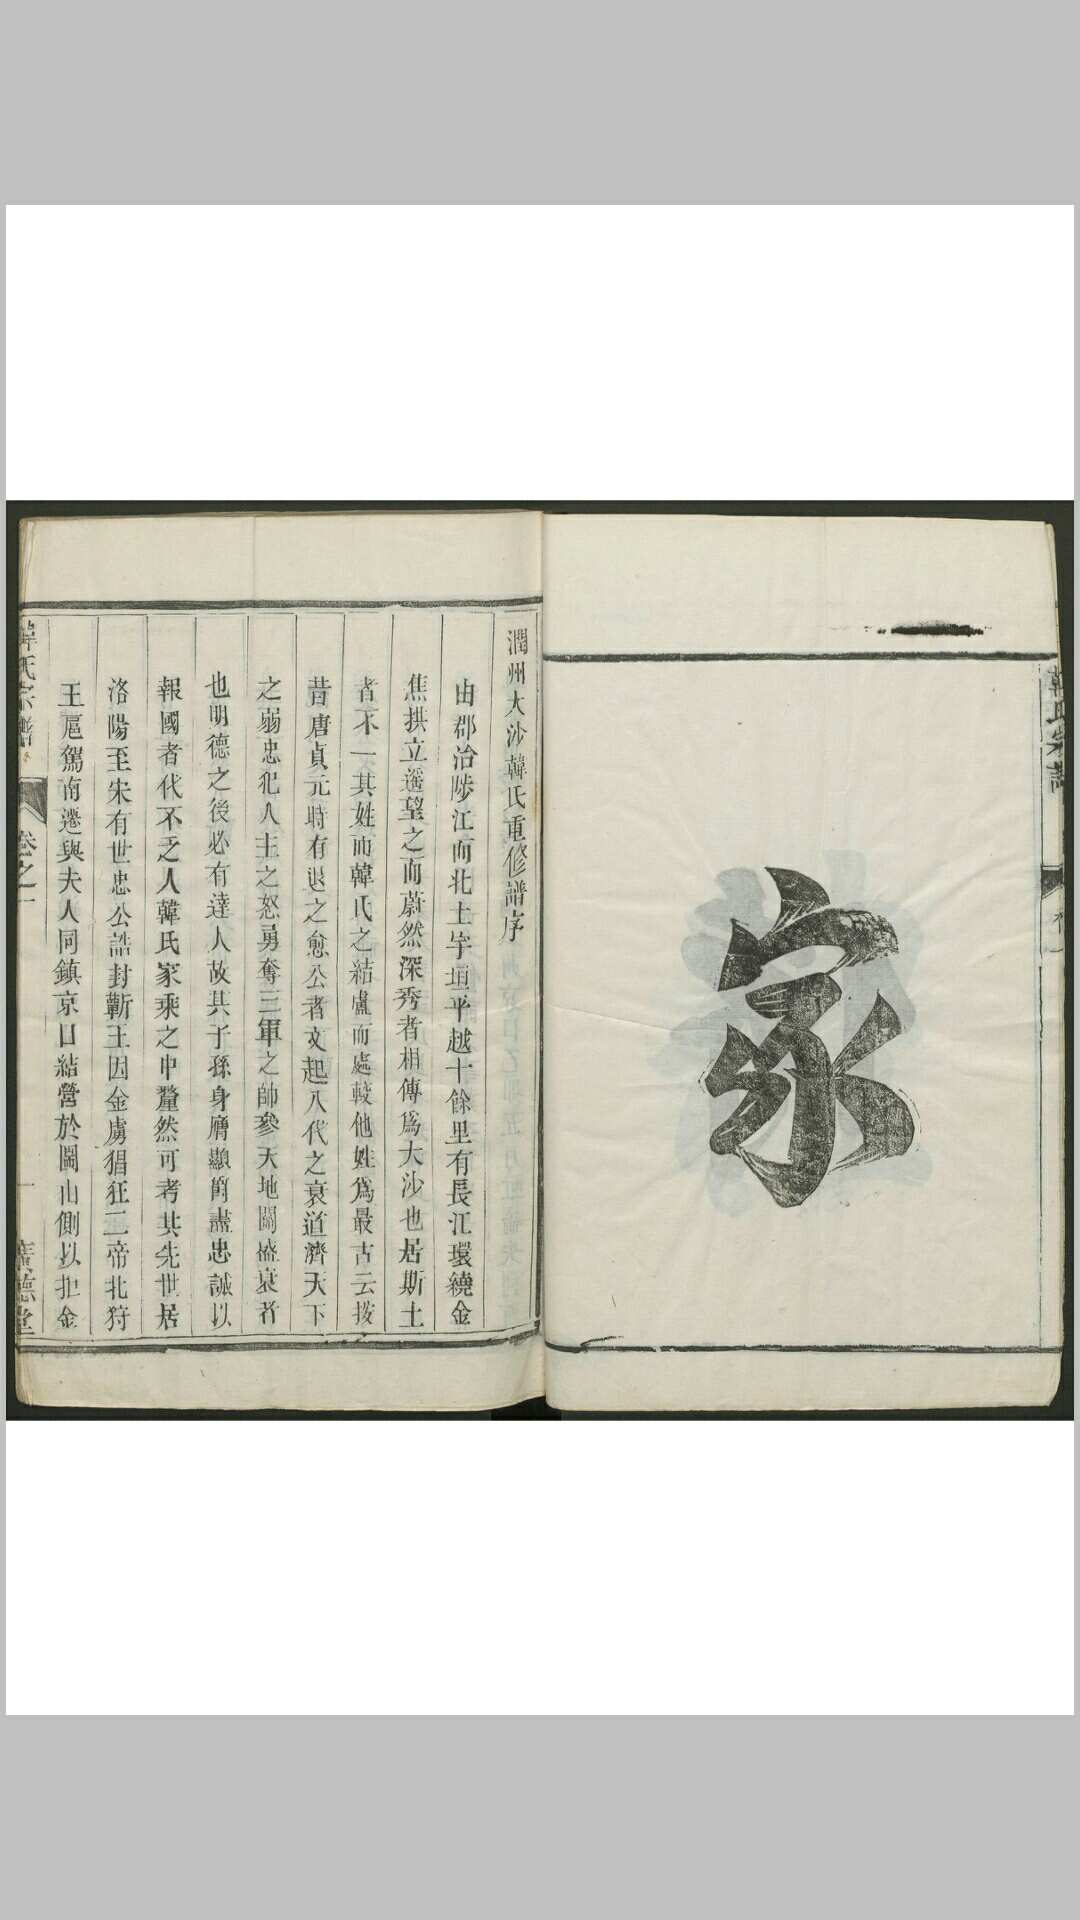 韓氏宗譜
家
潤州大沙韓氏重修譜序
由郡治陟江而北土宇垣平越十餘里有長江環繞金
焦拱立遥望之而蔚然深秀者相傳爲大沙也居斯土
者不一其姓而韓氏之結盧而處較他姓爲最古云按
昔唐貞元時有退之愈公者文起八代之衰道濟天下
之弱忠犯人主之怒勇奪三軍之帥參天地關盛衰者
也明德之後必有達人故其子孫身膺顯爵盡忠誠以
報國者代不乏人韓氏家乘之中釐然可考其先世居
洛陽至宋有世忠公誥封蘄王因金虜猖狂二帝北狩
王扈駕南遷與夫人同鎮京口結營於圌山側以拒金
韓氏宗譜
卷之一
一
廣德堂